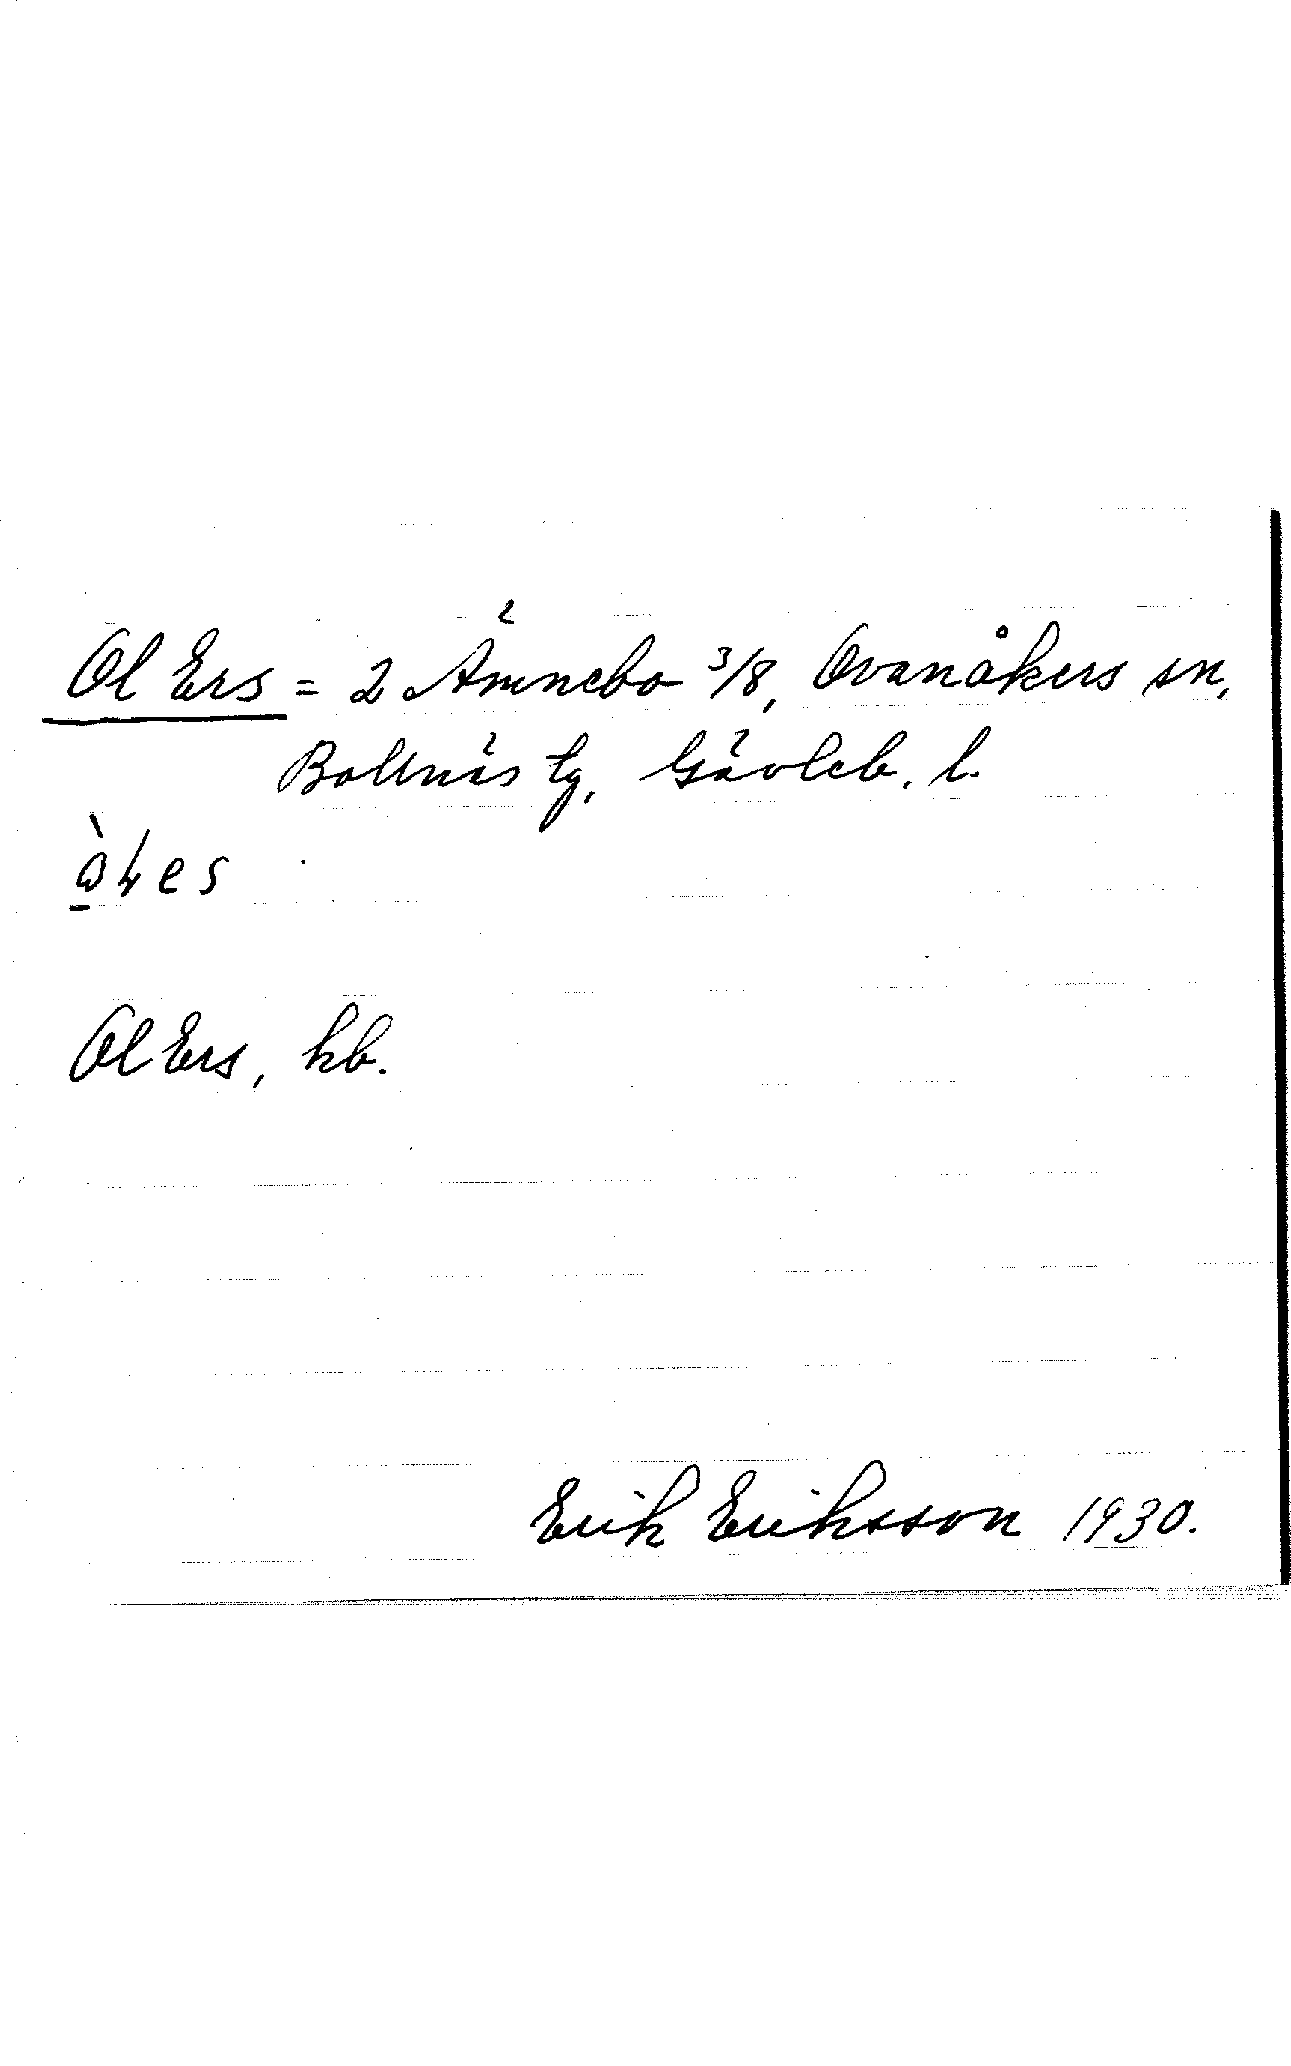 Ol Ers = 2 Ämnebo 3/8, Ovanåkers sn,
Bollnäs tg, Gävleb. l.
Ol Ers, kb.
Erik Eriksson 1930.